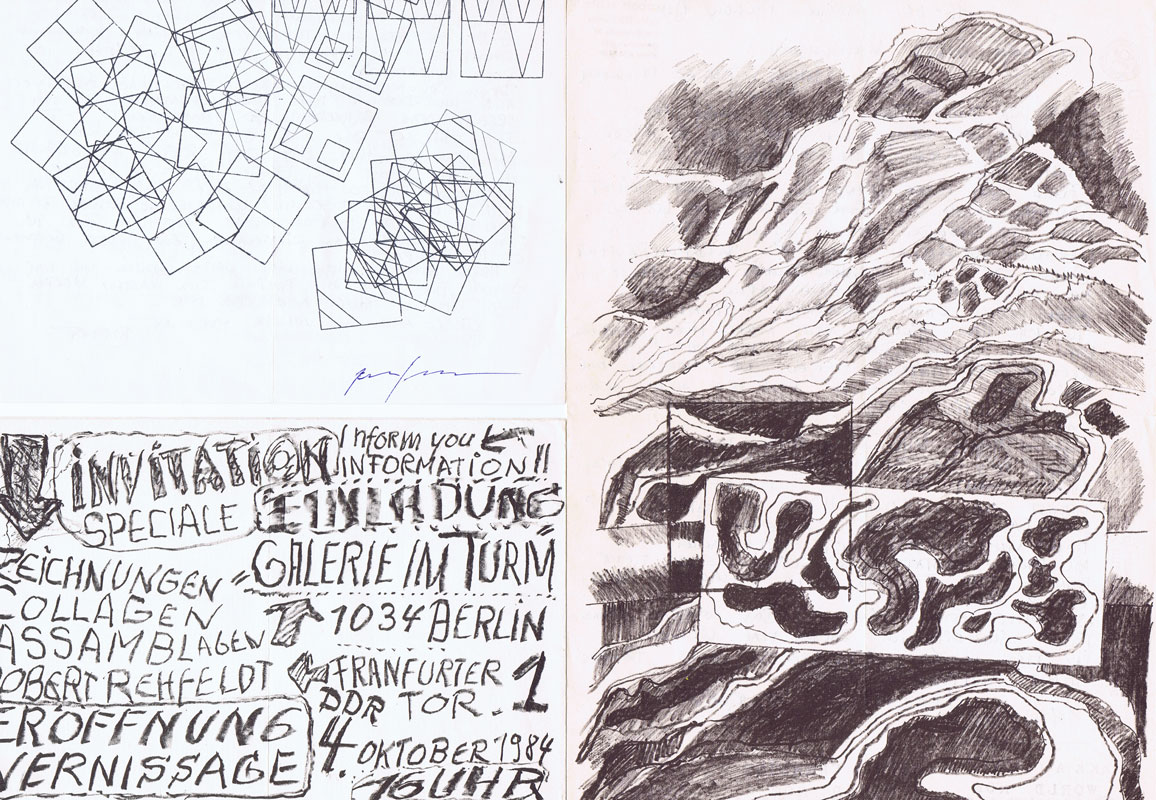 INVITATION
SPECIALE
Inform you
INFORMATION!!
EINLADUNG
"GALERIE IM TURM"
1034 BERLIN
FRANKFURTER
DDR TOR. 1
4. OKTOBER 1984
16 UHR
ZEICHNUNGEN
COLLAGEN
ASSAMBLAGEN
ROBERT REHFELDT
ERÖFFNUNG
VERNISSAGE